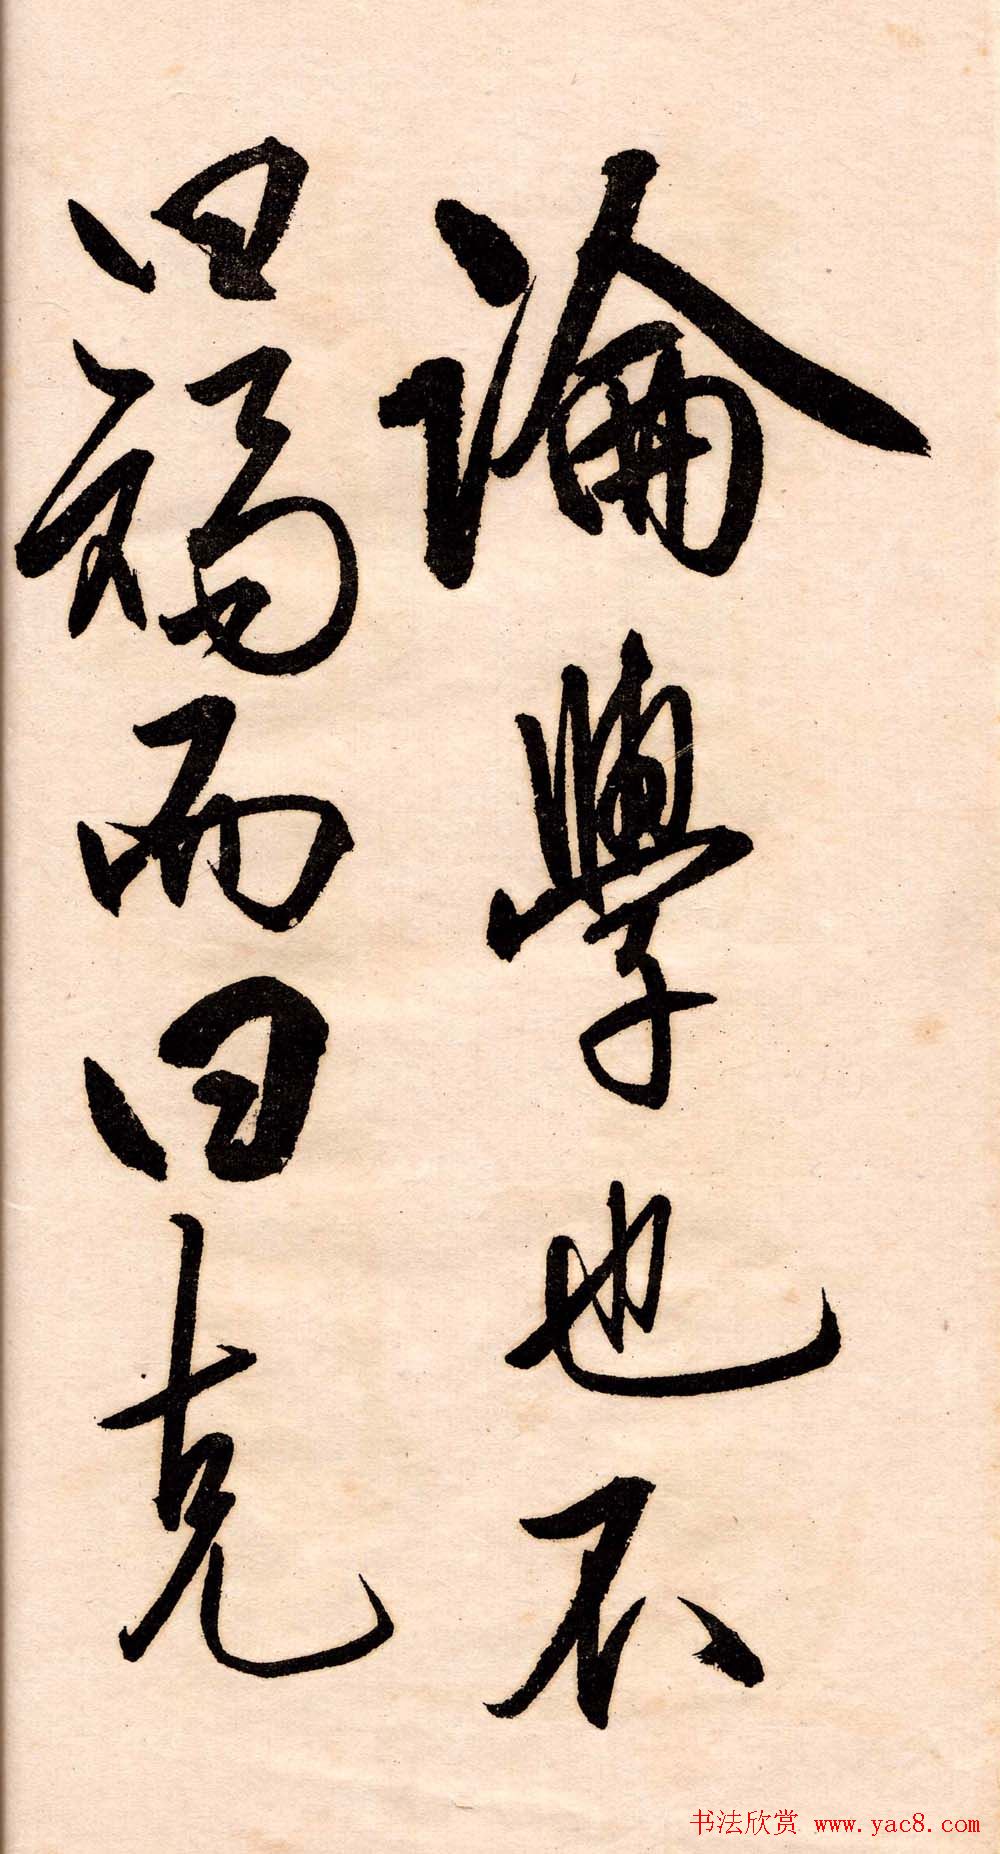 論學也不
曰而曰克
書法欣赏 www.yac8.com